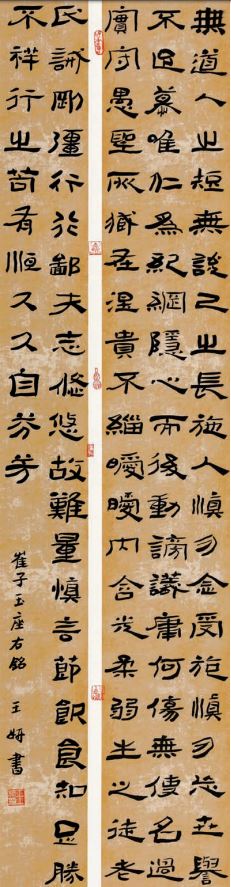 無道人之短無說己之長施人慎勿念受施慎勿忘世譽
不足慕唯仁為紀綱隱心而後動謗議庸何傷無使名過
實守愚聖所臧在涅貴不緇曖曖內含光柔弱生之徒老
氏誡剛彊行於鄙夫志悠悠故難量慎言節飲食知足勝
不祥行之苟有恆久久自芬芳
崔子玉座右銘 王妍書